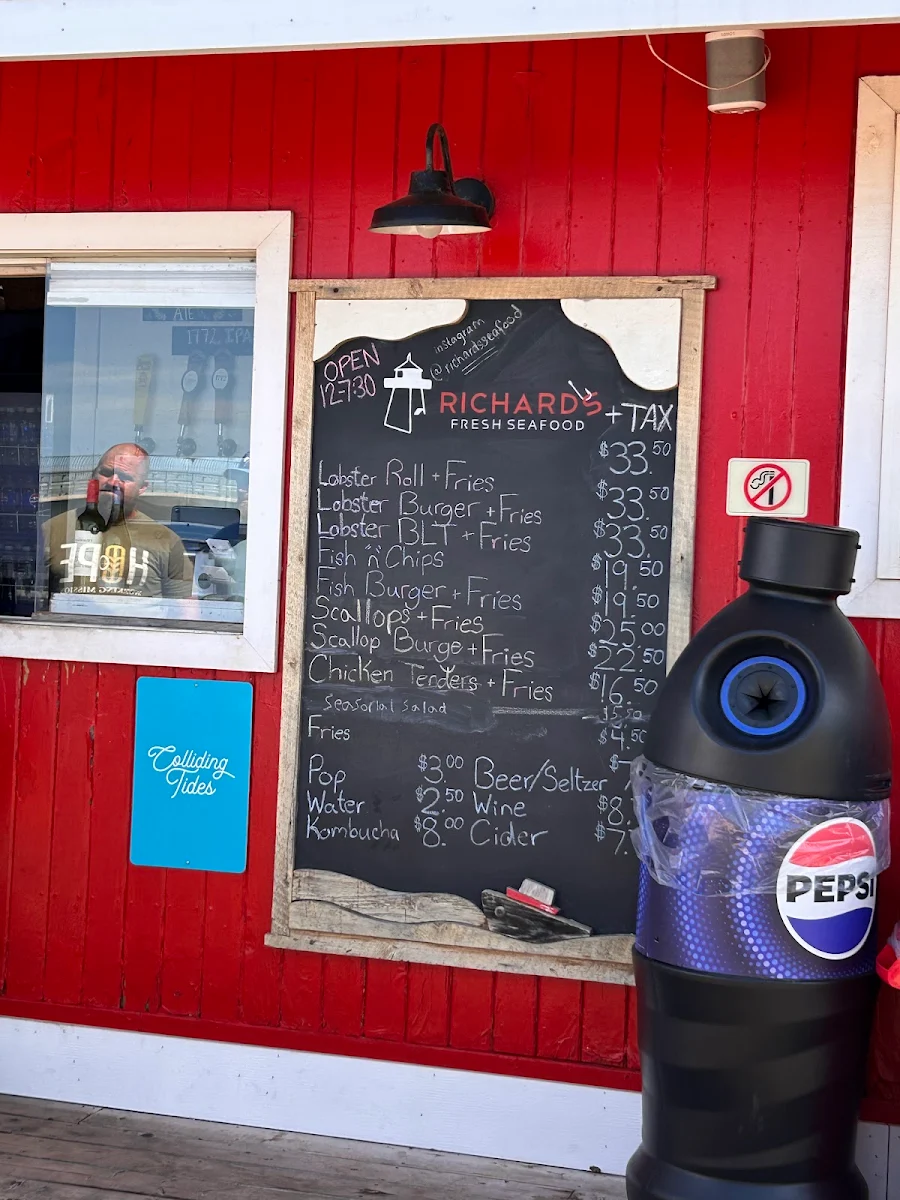 ALE
1772 IPA
HOPE
instagram
@richardsseafood
OPEN
12-7:30
RICHARD'S
FRESH SEAFOOD
+TAX
Lobster Roll + Fries $33.50
Lobster Burger + Fries $33.50
Lobster BLT + Fries $33.50
Fish 'n' Chips $19.50
Fish Burger + Fries $19.50
Scallops + Fries $25.00
Scallop Burge + Fries $22.50
Chicken Tenders + Fries $16.50
Seasonal Salad 15.50
Fries $4.50
Pop $3.00 Beer/Seltzer
Water $2.50 Wine $8.
Kombucha $8.00 Cider $7.
Colliding
Tides
PEPSI